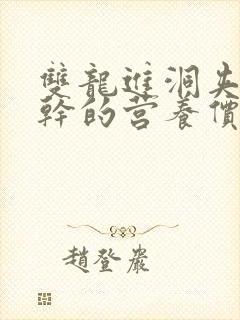 雙龍進洞失
幹的营養價
趙登嚴